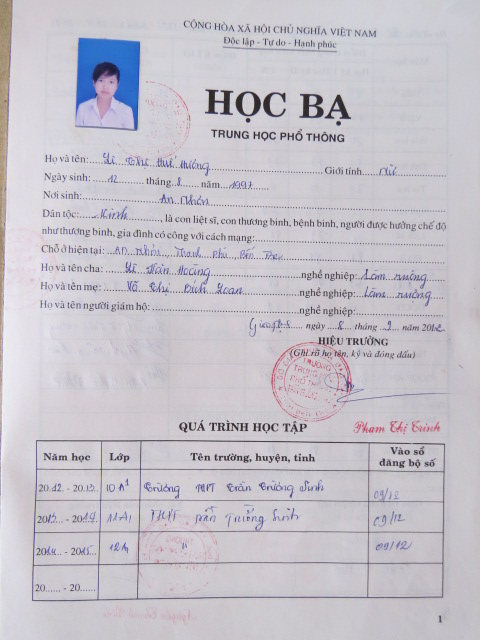 CỘNG HÒA XÃ HỘI CHỦ NGHĨA VIỆT NAM
Độc lập - Tự do - Hạnh phúc
HỌC BẠ
TRUNG HỌC PHỔ THÔNG
Họ và tên: Lê Thị Huế Hương Giới tính Nữ
Ngày sinh: 12 tháng 8 năm 1997
Nơi sinh: An Nhơn
Dân tộc: Kinh, là con liệt sĩ, con thương binh, bệnh binh, người được hưởng chế độ
như thương binh, gia đình có công với cách mạng:
Chỗ ở hiện tại: An Nhơn, Thạnh Phú, Bến Tre
Họ và tên cha: Lê Văn Hoàng nghề nghiệp: Làm ruộng
Họ và tên mẹ: Võ Thị Bích Loan nghề nghiệp: Làm ruộng
Họ và tên người giám hộ: nghề nghiệp:
ngày 8 tháng 9 năm 2012
HIỆU TRƯỞNG
(Ghi rõ họ tên, ký và đóng dấu)
Phạm Thị Trinh
QUÁ TRÌNH HỌC TẬP
Năm học Lớp Tên trường, huyện, tỉnh Vào sổ đăng bộ số
2012 - 2013 10A1 Trường THPT Trần Trường Sinh 09/12
2013 - 2014 11A1 THPT Trần Trường Sinh 09/12
2014 - 2015 12A1 " 09/12
20...... - 20......
1